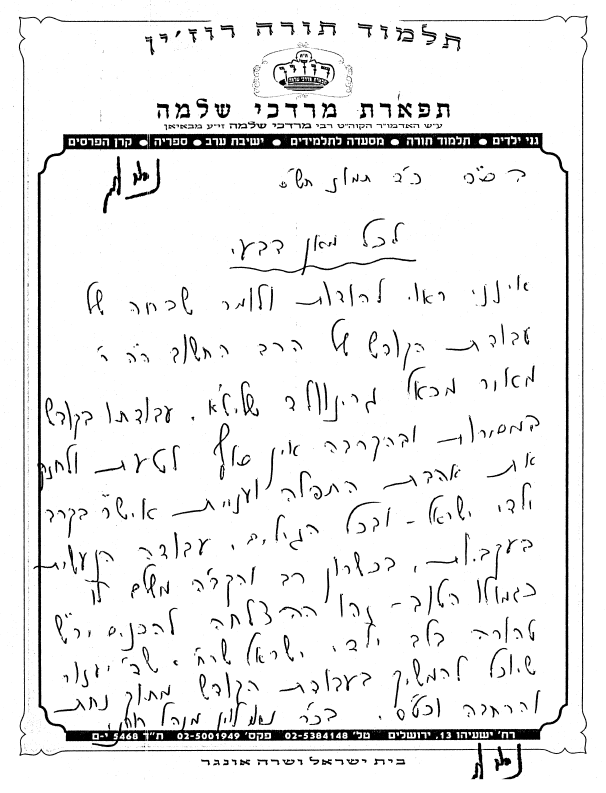 תלמוד תורה רוז'ין
רוזין
תפארת מרדכי שלמה
ע״ש האדמו״ר הקוה״ט רבי מרדכי שלמה זי״ע מבאיאן
גני ילדים • תלמוד תורה • מסעדה לתלמידים • ישיבת ערב • ספריה • קרן הפרסים
ב״ה כ״ב תמוז תש״ס
לכל מאן דבעי
אינני ראוי להודות ולומר שבחה של
עבודת הקודש של הרב החשוב ר' ר'
מאיר מכאל גרינוולד שליט״א. עבודתו בקודש
במסירות ובהקרבה אין סוף לטעת ולחנך
את אהבת התפילה ועניית איש״ר בקרב
ילדי ישראל - ובכל הגילים, עבודה הנעשית
בעקביות, בכשרון רב והקב״ה משלם לו
כגמולו הטוב - זהו ההצלחה להכניס יר״ש
טהורה בלב ילדי ישראל שיח'. שה' יעזור
שיוכל להמשיך בעבודת הקודש מתוך נחת
והרחבה וכט״ס. בכ״ר מנהל רוחני
רח' ישעיהו 13, ירושלים טל' 02-5384148 פקס' 02-5001949 ת״ד 5468 י-ם
בית ישראל ושרה אונגר